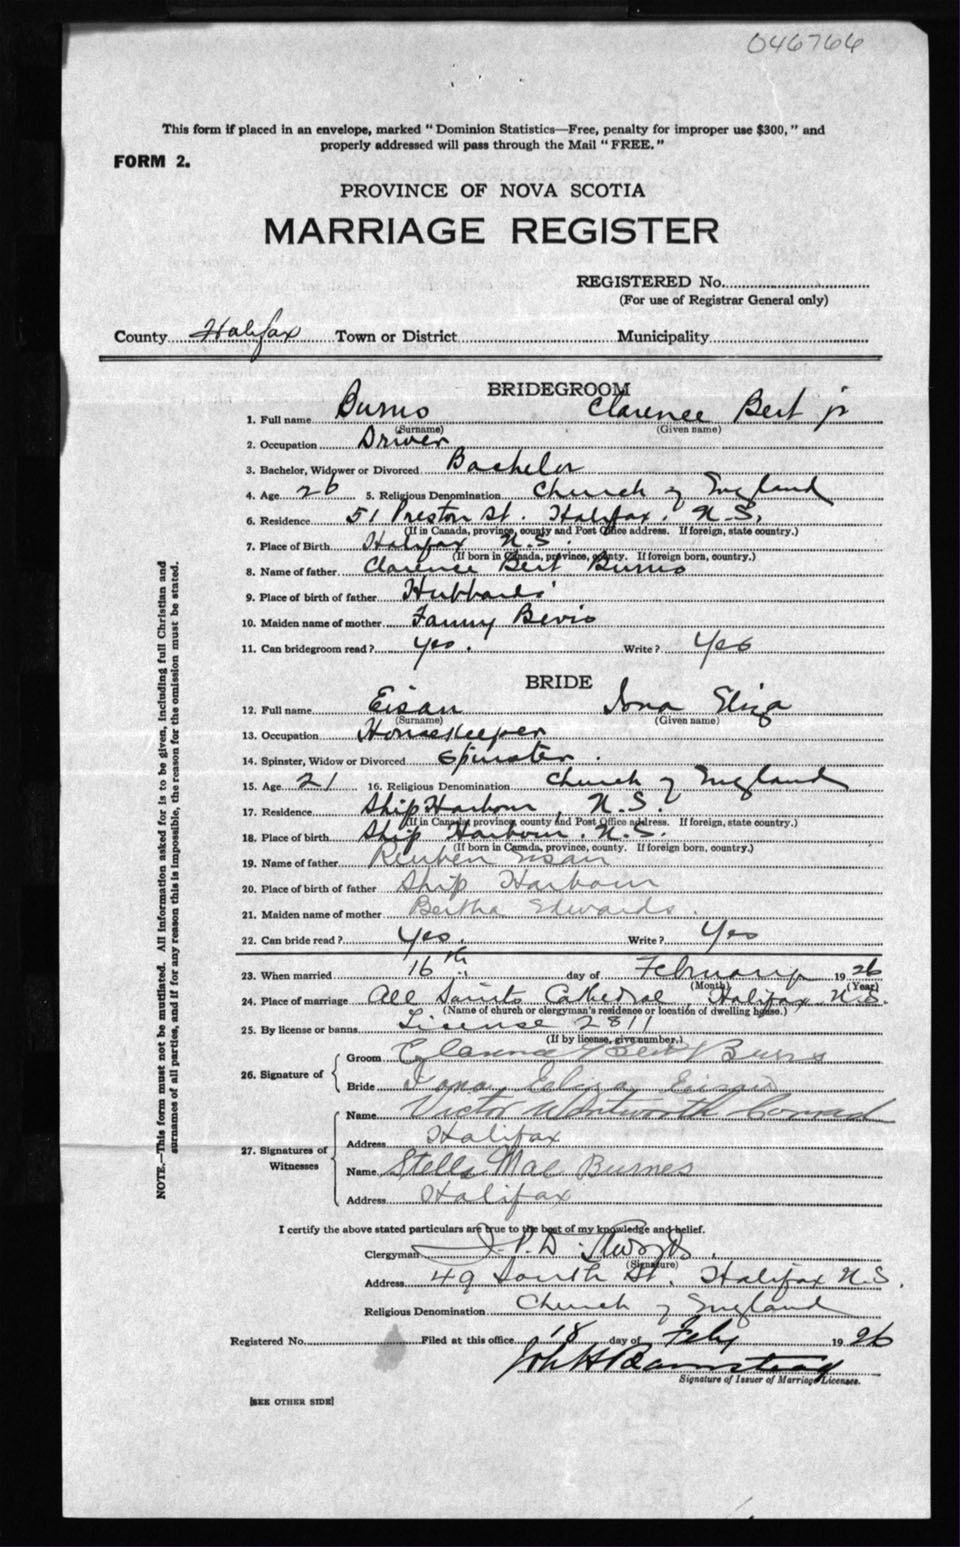 046766
This form if placed in an envelope, marked "Dominion Statistics—Free, penalty for improper use $300," and
properly addressed will pass through the Mail "FREE."
FORM 2.
PROVINCE OF NOVA SCOTIA
MARRIAGE REGISTER
REGISTERED No.
(For use of Registrar General only)
County Halifax Town or District Municipality
BRIDEGROOM
1. Full name Burns Clarence Bert jr
(Surname) (Given name)
2. Occupation Driver
3. Bachelor, Widower or Divorced Bachelor
4. Age 26 5. Religious Denomination Church of England
6. Residence 51 Preston St. Halifax, N.S.
(If in Canada, province, county and Post Office address. If foreign, state country.)
7. Place of Birth Halifax N.S.
(If born in Canada, province, county. If foreign born, country.)
8. Name of father Clarence Bert Burns
9. Place of birth of father Hubbards
10. Maiden name of mother Fanny Bevis
11. Can bridegroom read? Yes. Write? Yes
BRIDE
12. Full name Eisan Iona Eliza
(Surname) (Given name)
13. Occupation Housekeeper
14. Spinster, Widow or Divorced Spinster.
15. Age 21 16. Religious Denomination Church of England
17. Residence Ship Harbour, N.S.
(If in Canada, province, county and Post Office address. If foreign, state country.)
18. Place of birth Ship Harbour. N.S.
(If born in Canada, province, county. If foreign born, country.)
19. Name of father Reuben Eisan
20. Place of birth of father Ship Harbour
21. Maiden name of mother Bertha Edwards.
22. Can bride read? Yes. Write? Yes
23. When married 16th day of February 1926
(Month) (Year)
24. Place of marriage All Saints Cathedral, Halifax N.S.
(Name of church or clergyman's residence or location of dwelling house.)
25. By license or banns License 2811
(If by license, give number.)
26. Signature of
Groom Clarence Bert Burns
Bride Iona Eliza Eisan
27. Signatures of Witnesses
Name Victor Wentworth Conrad
Address Halifax
Name Stella Mae Burnes
Address Halifax
I certify the above stated particulars are true to the best of my knowledge and belief.
Clergyman
(Signature)
Address 49 South St. Halifax N.S.
Religious Denomination Church of England
Registered No. Filed at this office 18 day of Feby 1926
Signature of Issuer of Marriage Licenses.
[SEE OTHER SIDE]
NOTE.—This form must not be mutilated. All information asked for is to be given, including full Christian and
surnames of all parties, and if for any reason this is impossible, the reason for the omission must be stated.